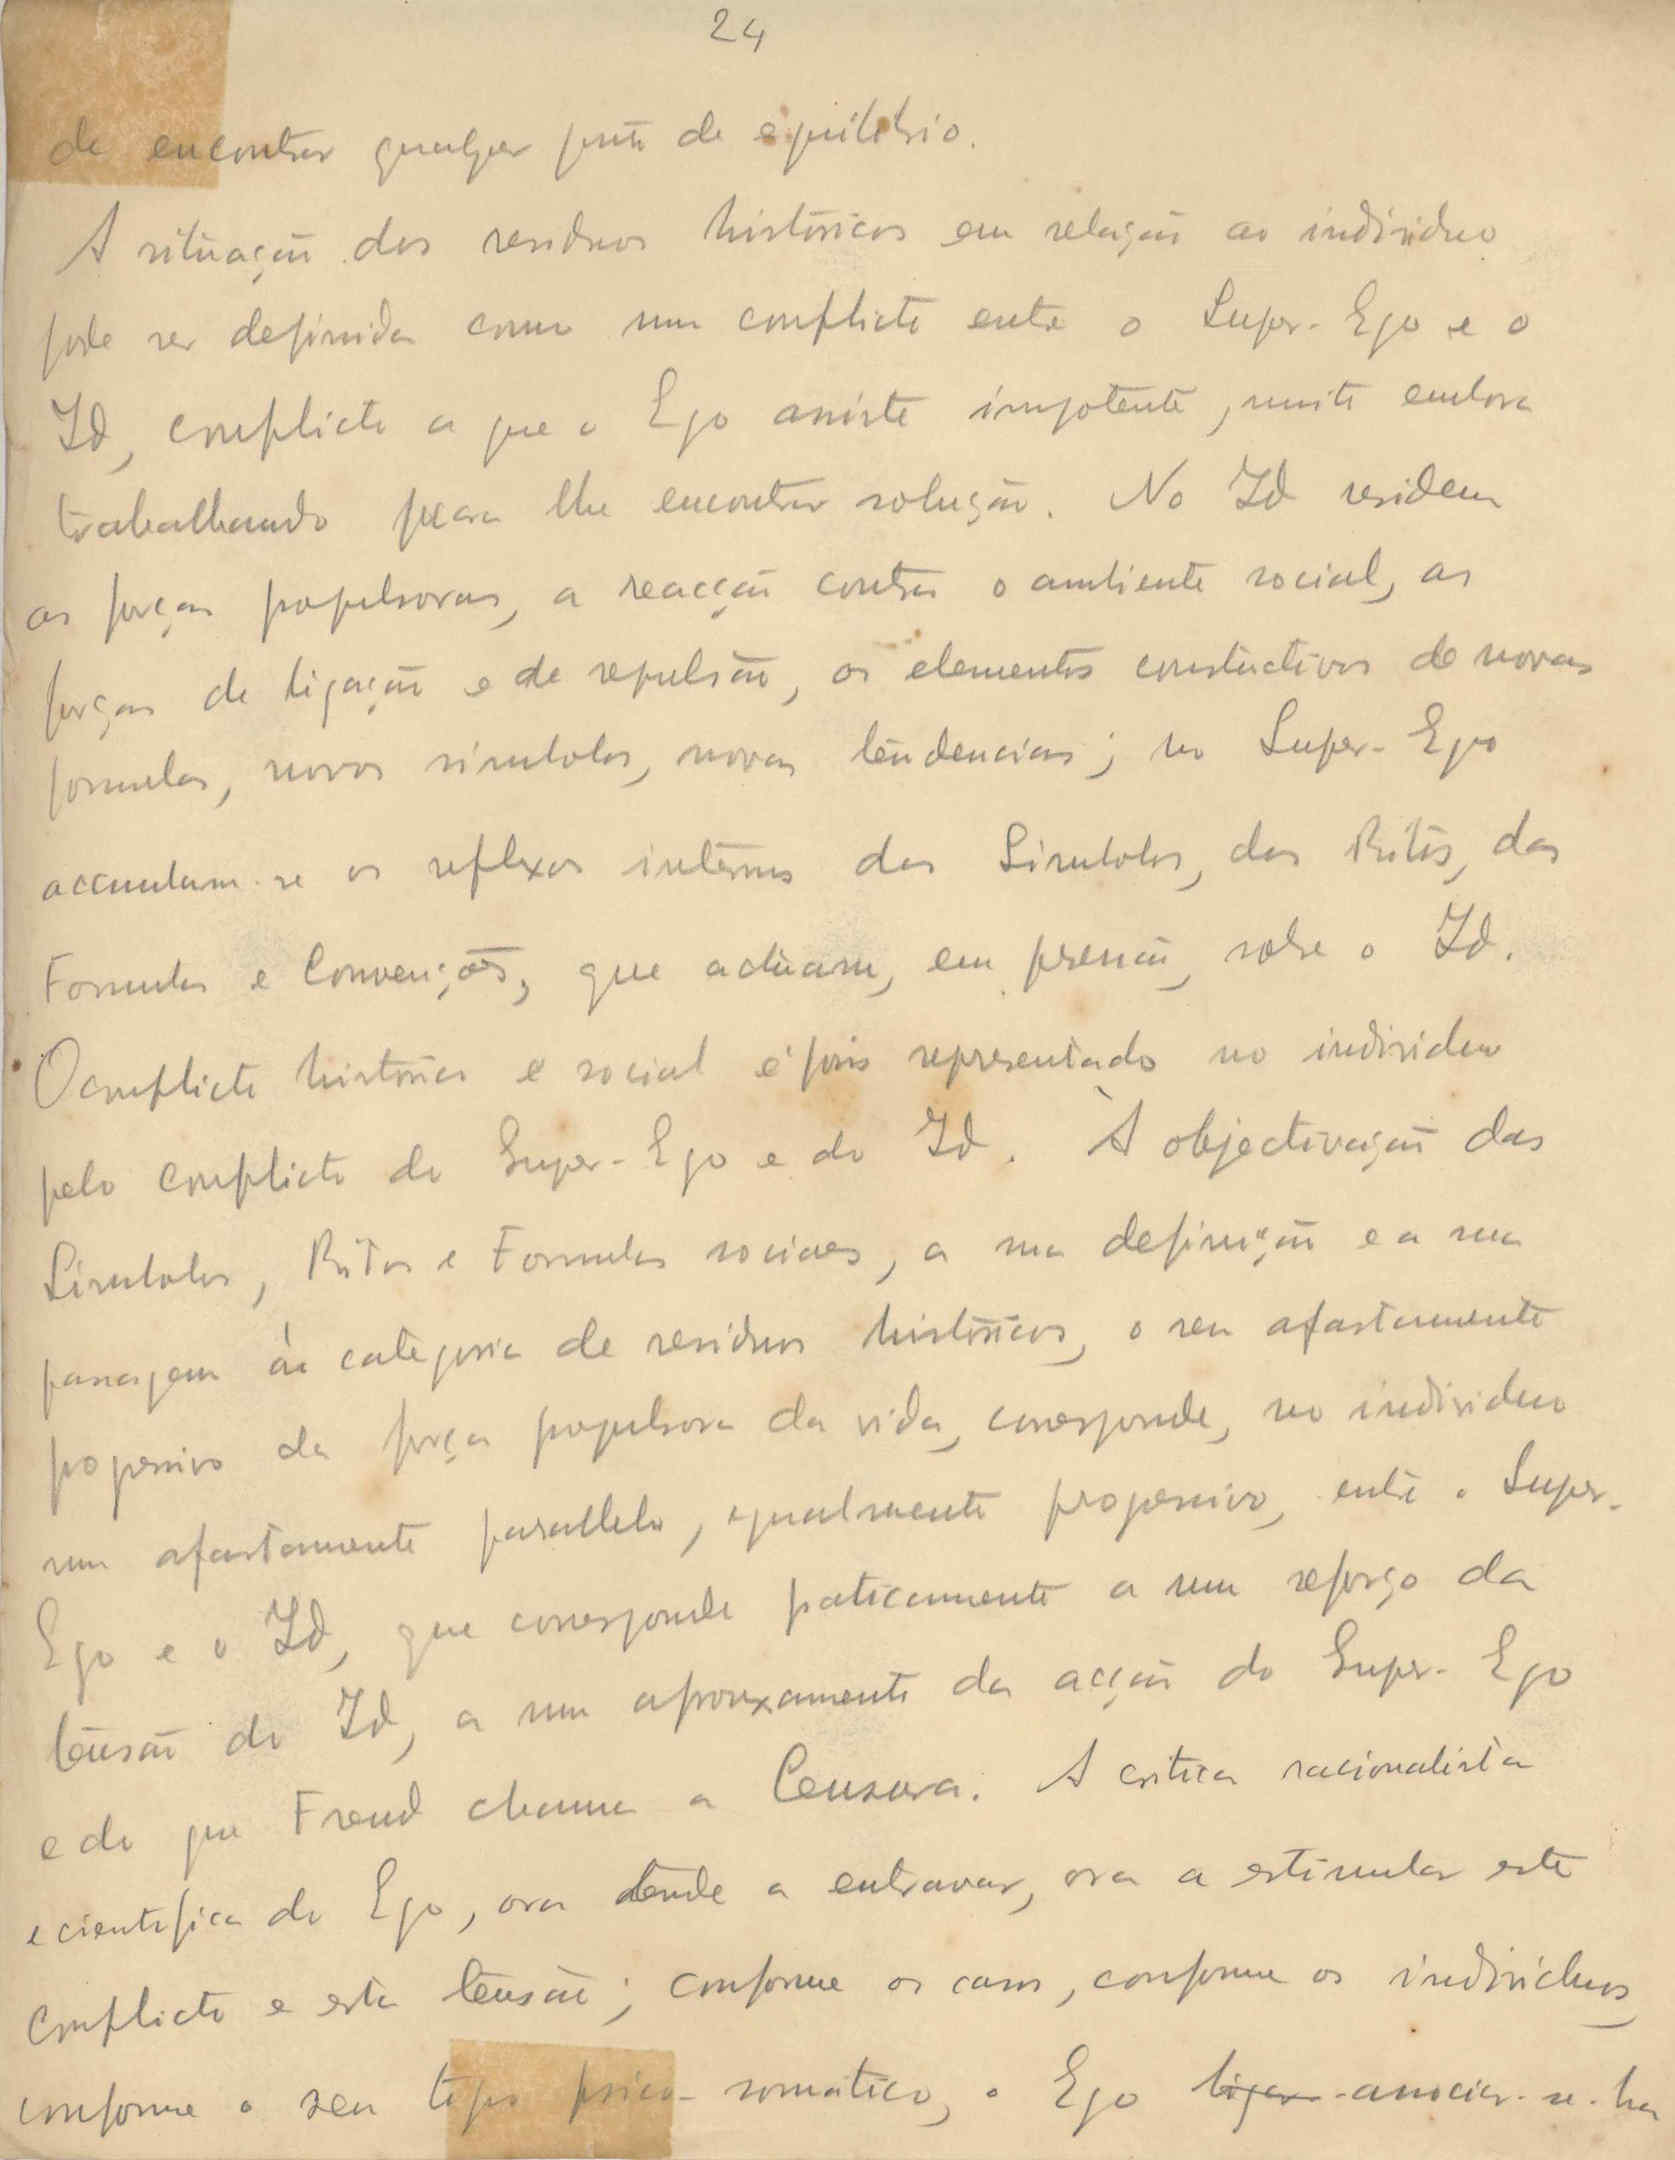 24
de encontrar qualquer ponto de equilibrio.
A situação dos residuos históricos em relação ao individuo
pode ser definida como um conflicto entre o Super-Ego e o
Id, conflicto a que o Ego assiste impotente, muito embora
trabalhando para lhe encontrar solução. No Id residem
as forças propulsoras, a reacção contra o ambiente social, as
forças de ligação e de repulsão, os elementos constructivos de novas
formulas, novos simbolos, novas tendencias; no Super-Ego
accumulam-se os reflexos internos dos Simbolos, dos Ritos, das
Formulas e Convenções, que actuam, em pressão, sobre o Id.
O conflicto historico e social é pois representado no individuo
pelo conflicto do Super-Ego e do Id. À objectivação dos
Simbolos, Ritos e Formulas sociaes, a sua definição e a sua
passagem á categoria de residuos históricos, o seu afastamento
progressivo da força propulsora da vida, corresponde, no individuo
um afastamento parallelo, egualmente progressivo, entre o Super-
Ego e o Id, que corresponde praticamente a um reforço da
tensão do Id, a um afrouxamento da acção do Super-Ego
e do que Freud chama a Censura. A critica racionalista
e cientifica do Ego, ora tende a entravar, ora a estimular este
conflicto e esta tensão; conforme os casos, conforme os individuos,
conforme o seu tipo psico-somático, o Ego ligar-associar-se-ha